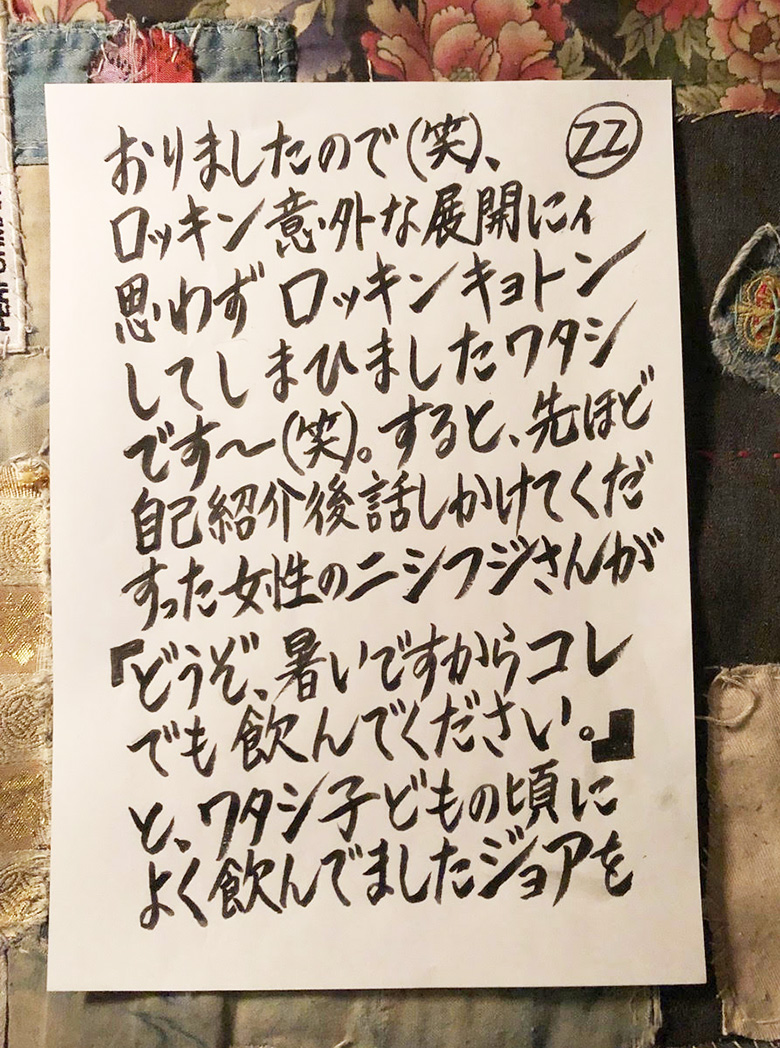 おりましたので(笑)、 22
ロッキン意外な展開にィ
思わずロッキンキョトン
してしまひましたワタシ
です〜(笑)。すると、先ほど
自己紹介後話しかけてくだ
すった女性のニシフジさんが
『どうぞ、暑いですからコレ
でも飲んでください。』
と、ワタシ子どもの頃に
よく飲んでましたジョアを